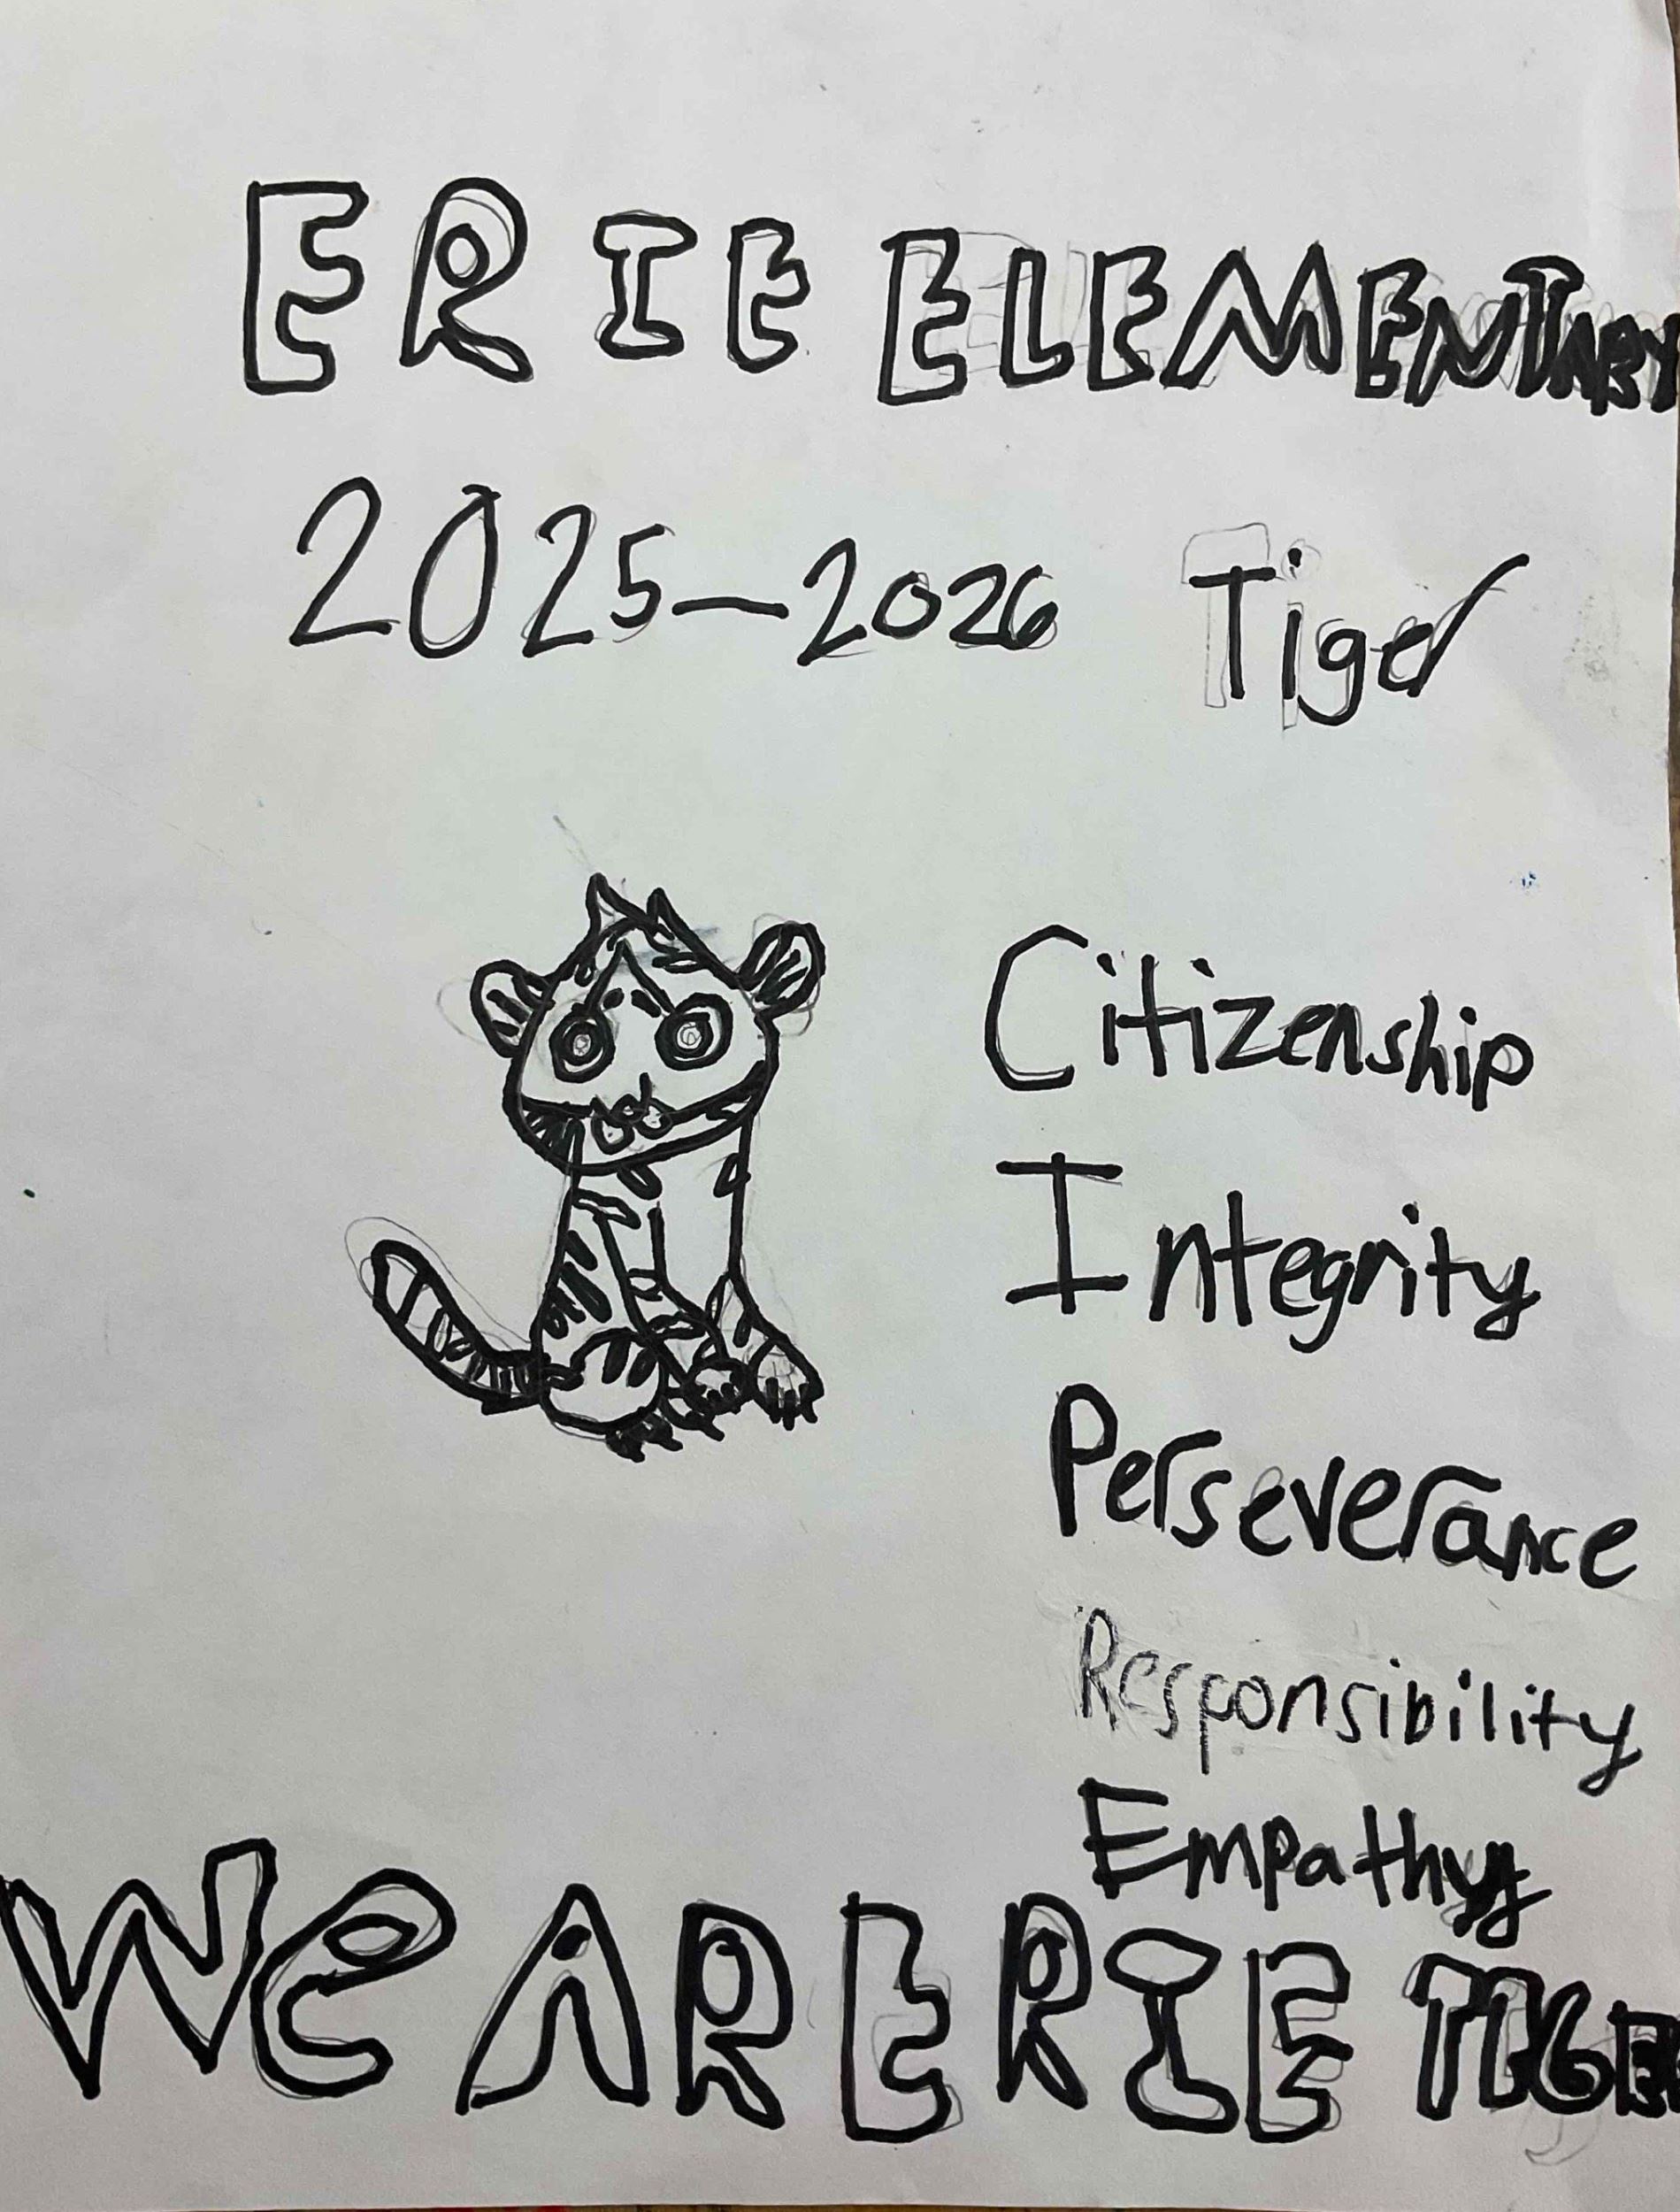 ERIE ELEMENTARY
2025-2026 Tiger
Citizenship
Integrity
Perseverance
Responsibility
Empathy
We ARERIE TIGE